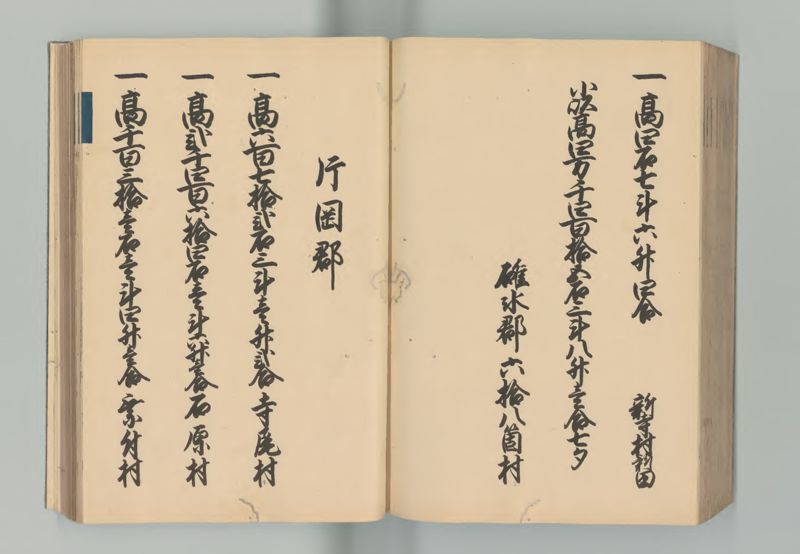 一高四石七斗六升四合 新寺村新田
小以高四万千四百拾五石三斗八升壱合七夕
碓氷郡六拾八箇村
片岡郡
一高六百七拾弐石三斗壱升弐合 寺尾村
一高弐千四百六拾四石壱斗六升壱合 石原村
一高千百三拾壱石壱斗四升壱合 乗附村